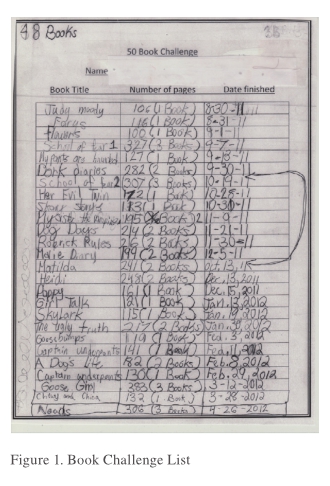 48 Books
3B
50 Book Challenge
Name
Book Title Number of pages Date finished
Judy moody 106 (1 Book) 8-30-11
Focus 116 (1 Book) 8-31-11
100 (1 Book) 9-1-11
School of fear 1 327 (3 Books) 9-7-11
My are haunted 127 (1 Book) 9-13-11
Dork diaries 282 (2 Books) 9-30-11
School of fear 2 307 (3 Books) 10-19-11
Her Evil Twin 172 (1 Book) 10-28-11
(1 Book) 10-30-11
195 Book) 11-9-11
Dog Days 214 (2 Books) 11-21-11
Rodrick Rules 216 (2 Books) 11-30-11
Diary 199 (2 Books) 12-5-11
Matilda 241 (2 Books) oct. 13, 11
Heidi 248 (2 Books) Dec. 13, 2011
Poppy 161 (1 Book) Dec. 15, 2011
Talk 121 (1 Book) Jan. 13, 2012
Skylark 115 (1 Book) Jan. 19, 2012
The Ugly truth 217 (2 Books) Jan. 2012
Goosebumps 119 (1 Book) Fed. 3, 2012
Captain underpants 141 (1 Book) Fed. 11, 2012
A Dog's Life 182 (2 Books) Feb. 8, 2012
Captain underpants 130 (1 Book) Feb. 29, 2012
Goose Girl 383 (3 Books) 3-12-2012
and China 132 (1 Book) 3-28-2012
Woods 306 (3 Books) 4-26-2012
Figure 1. Book Challenge List